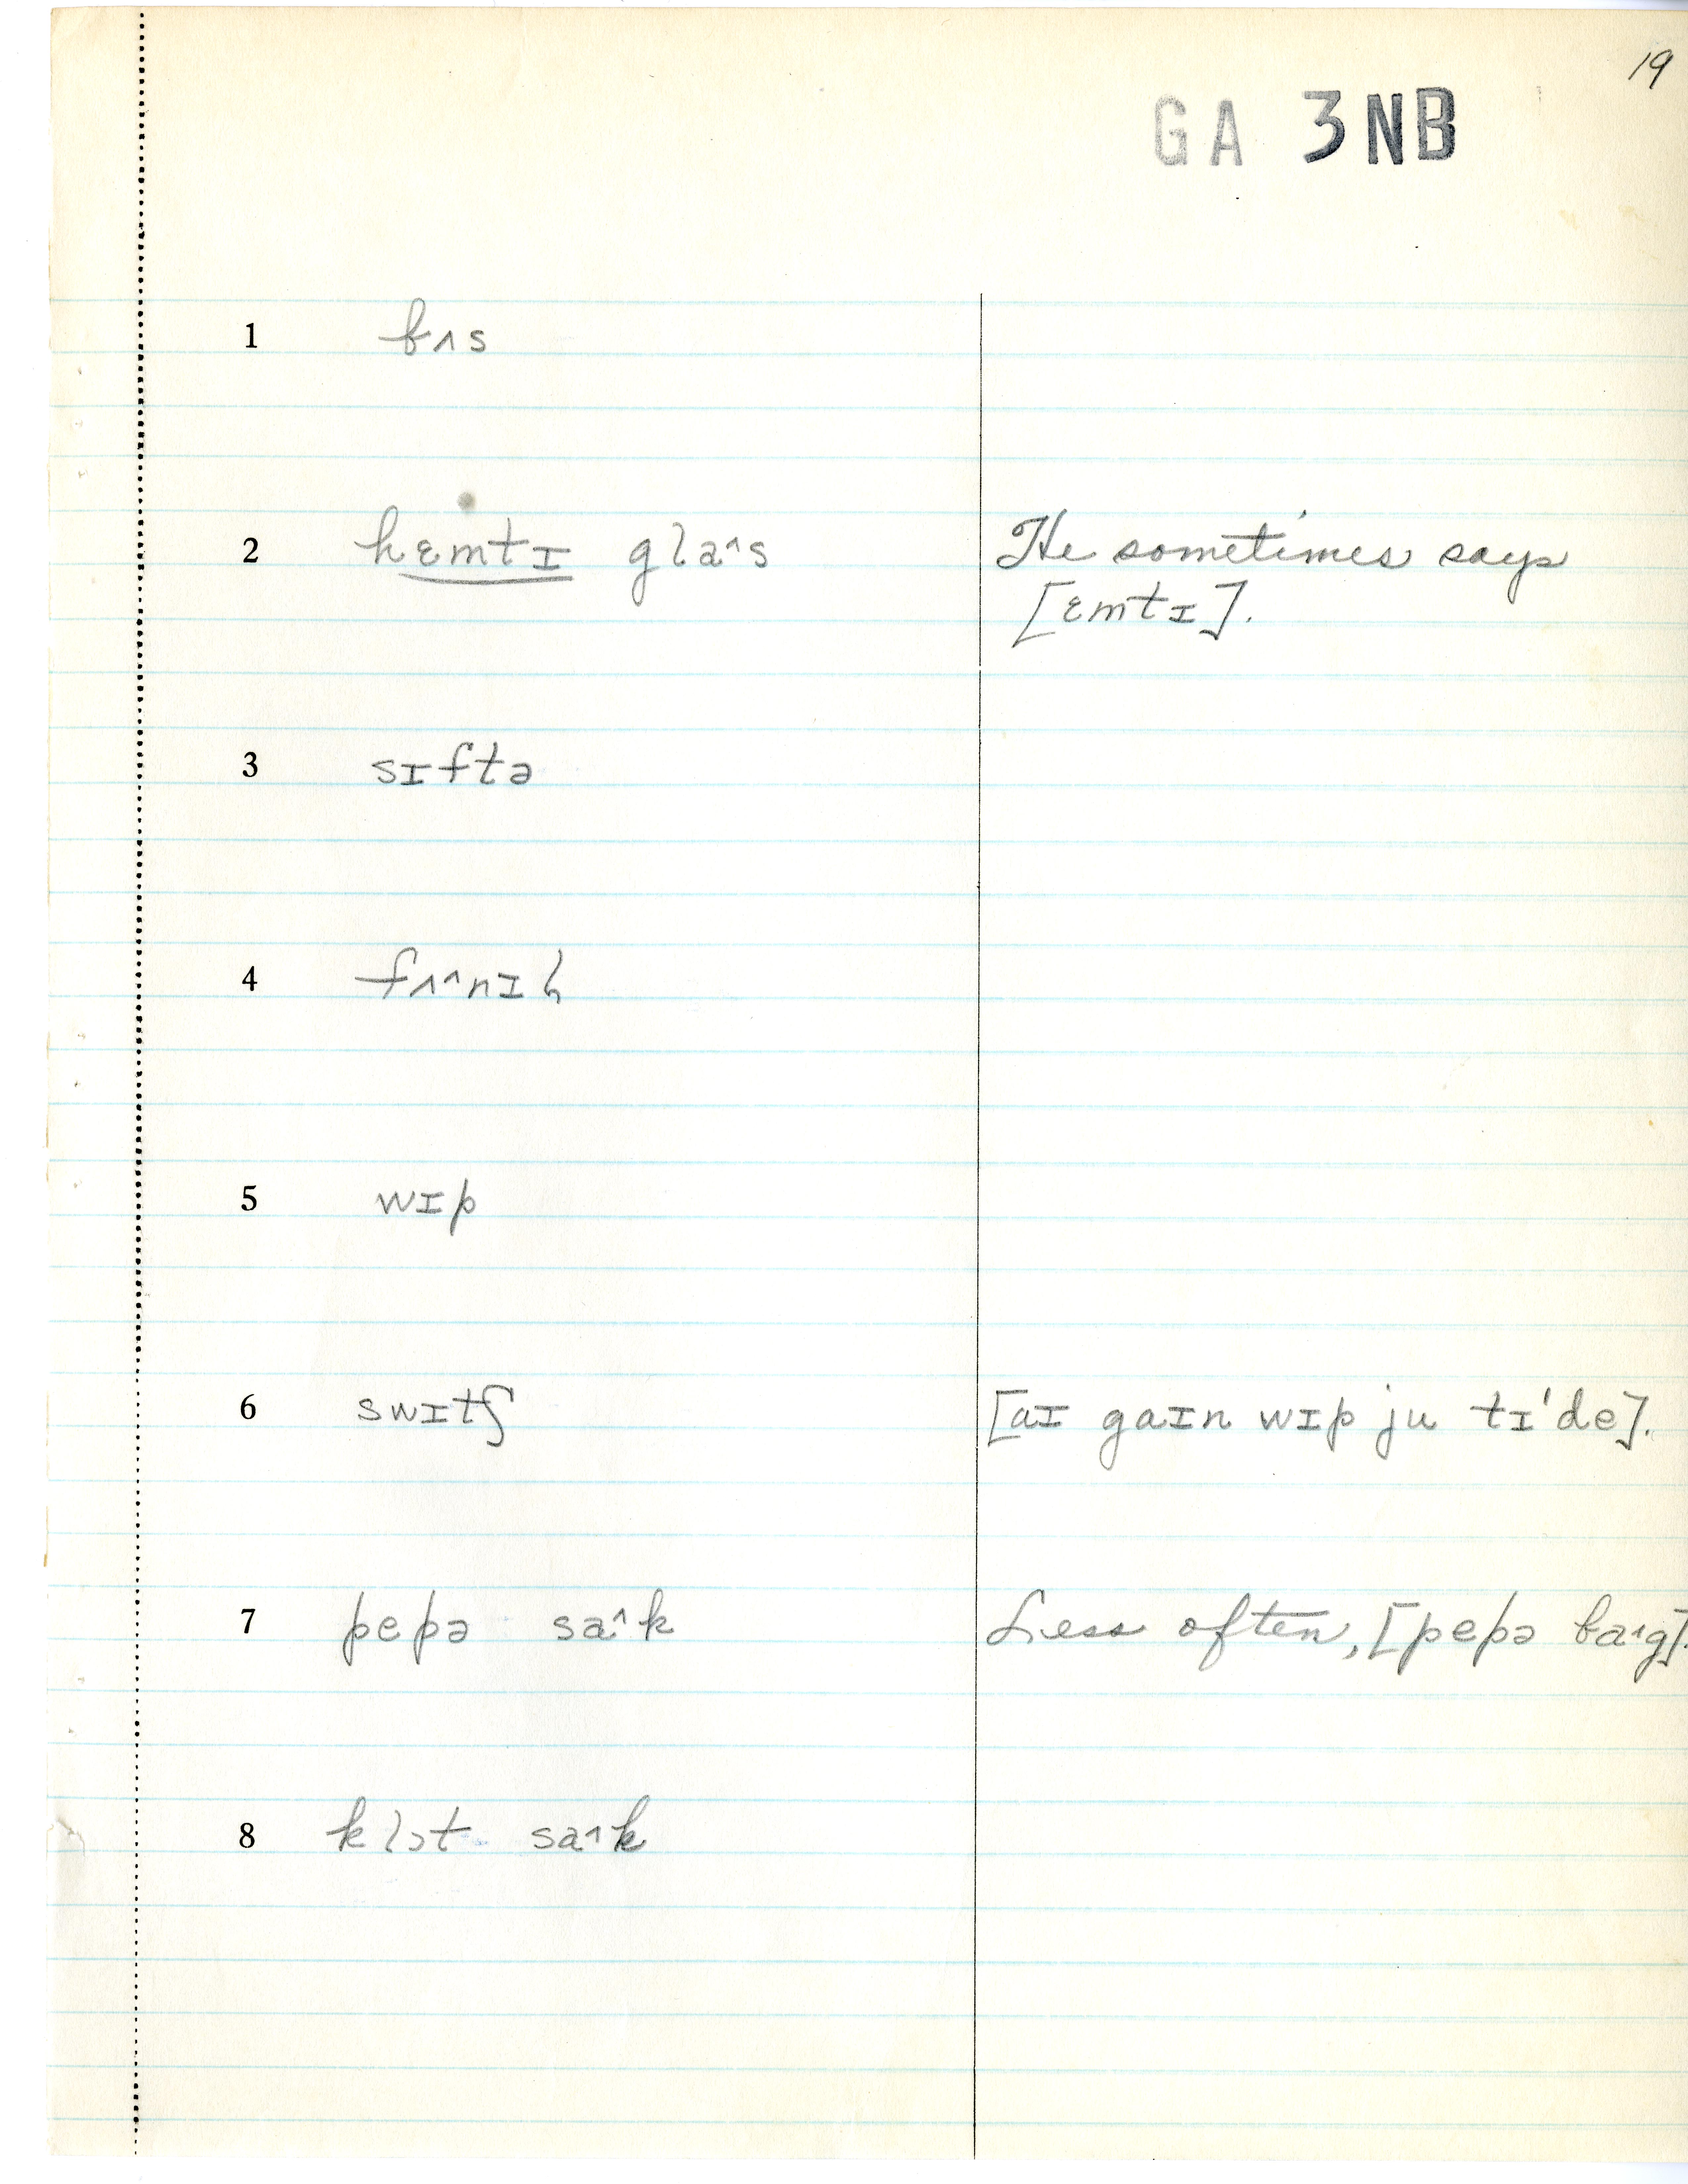 19
GA 3NB
1 bʌs
2 hɛmtɪ glaˆs He sometimes says
[ɛmtɪ].
3 sɪftə
4 fʌˆnɪl
5 wɪp
6 swɪtʃ [aɪ gaɪn wɪp ju tɪ'de].
7 pepə saˆk Less often, [pepə baˆg].
8 klɔt saˆk